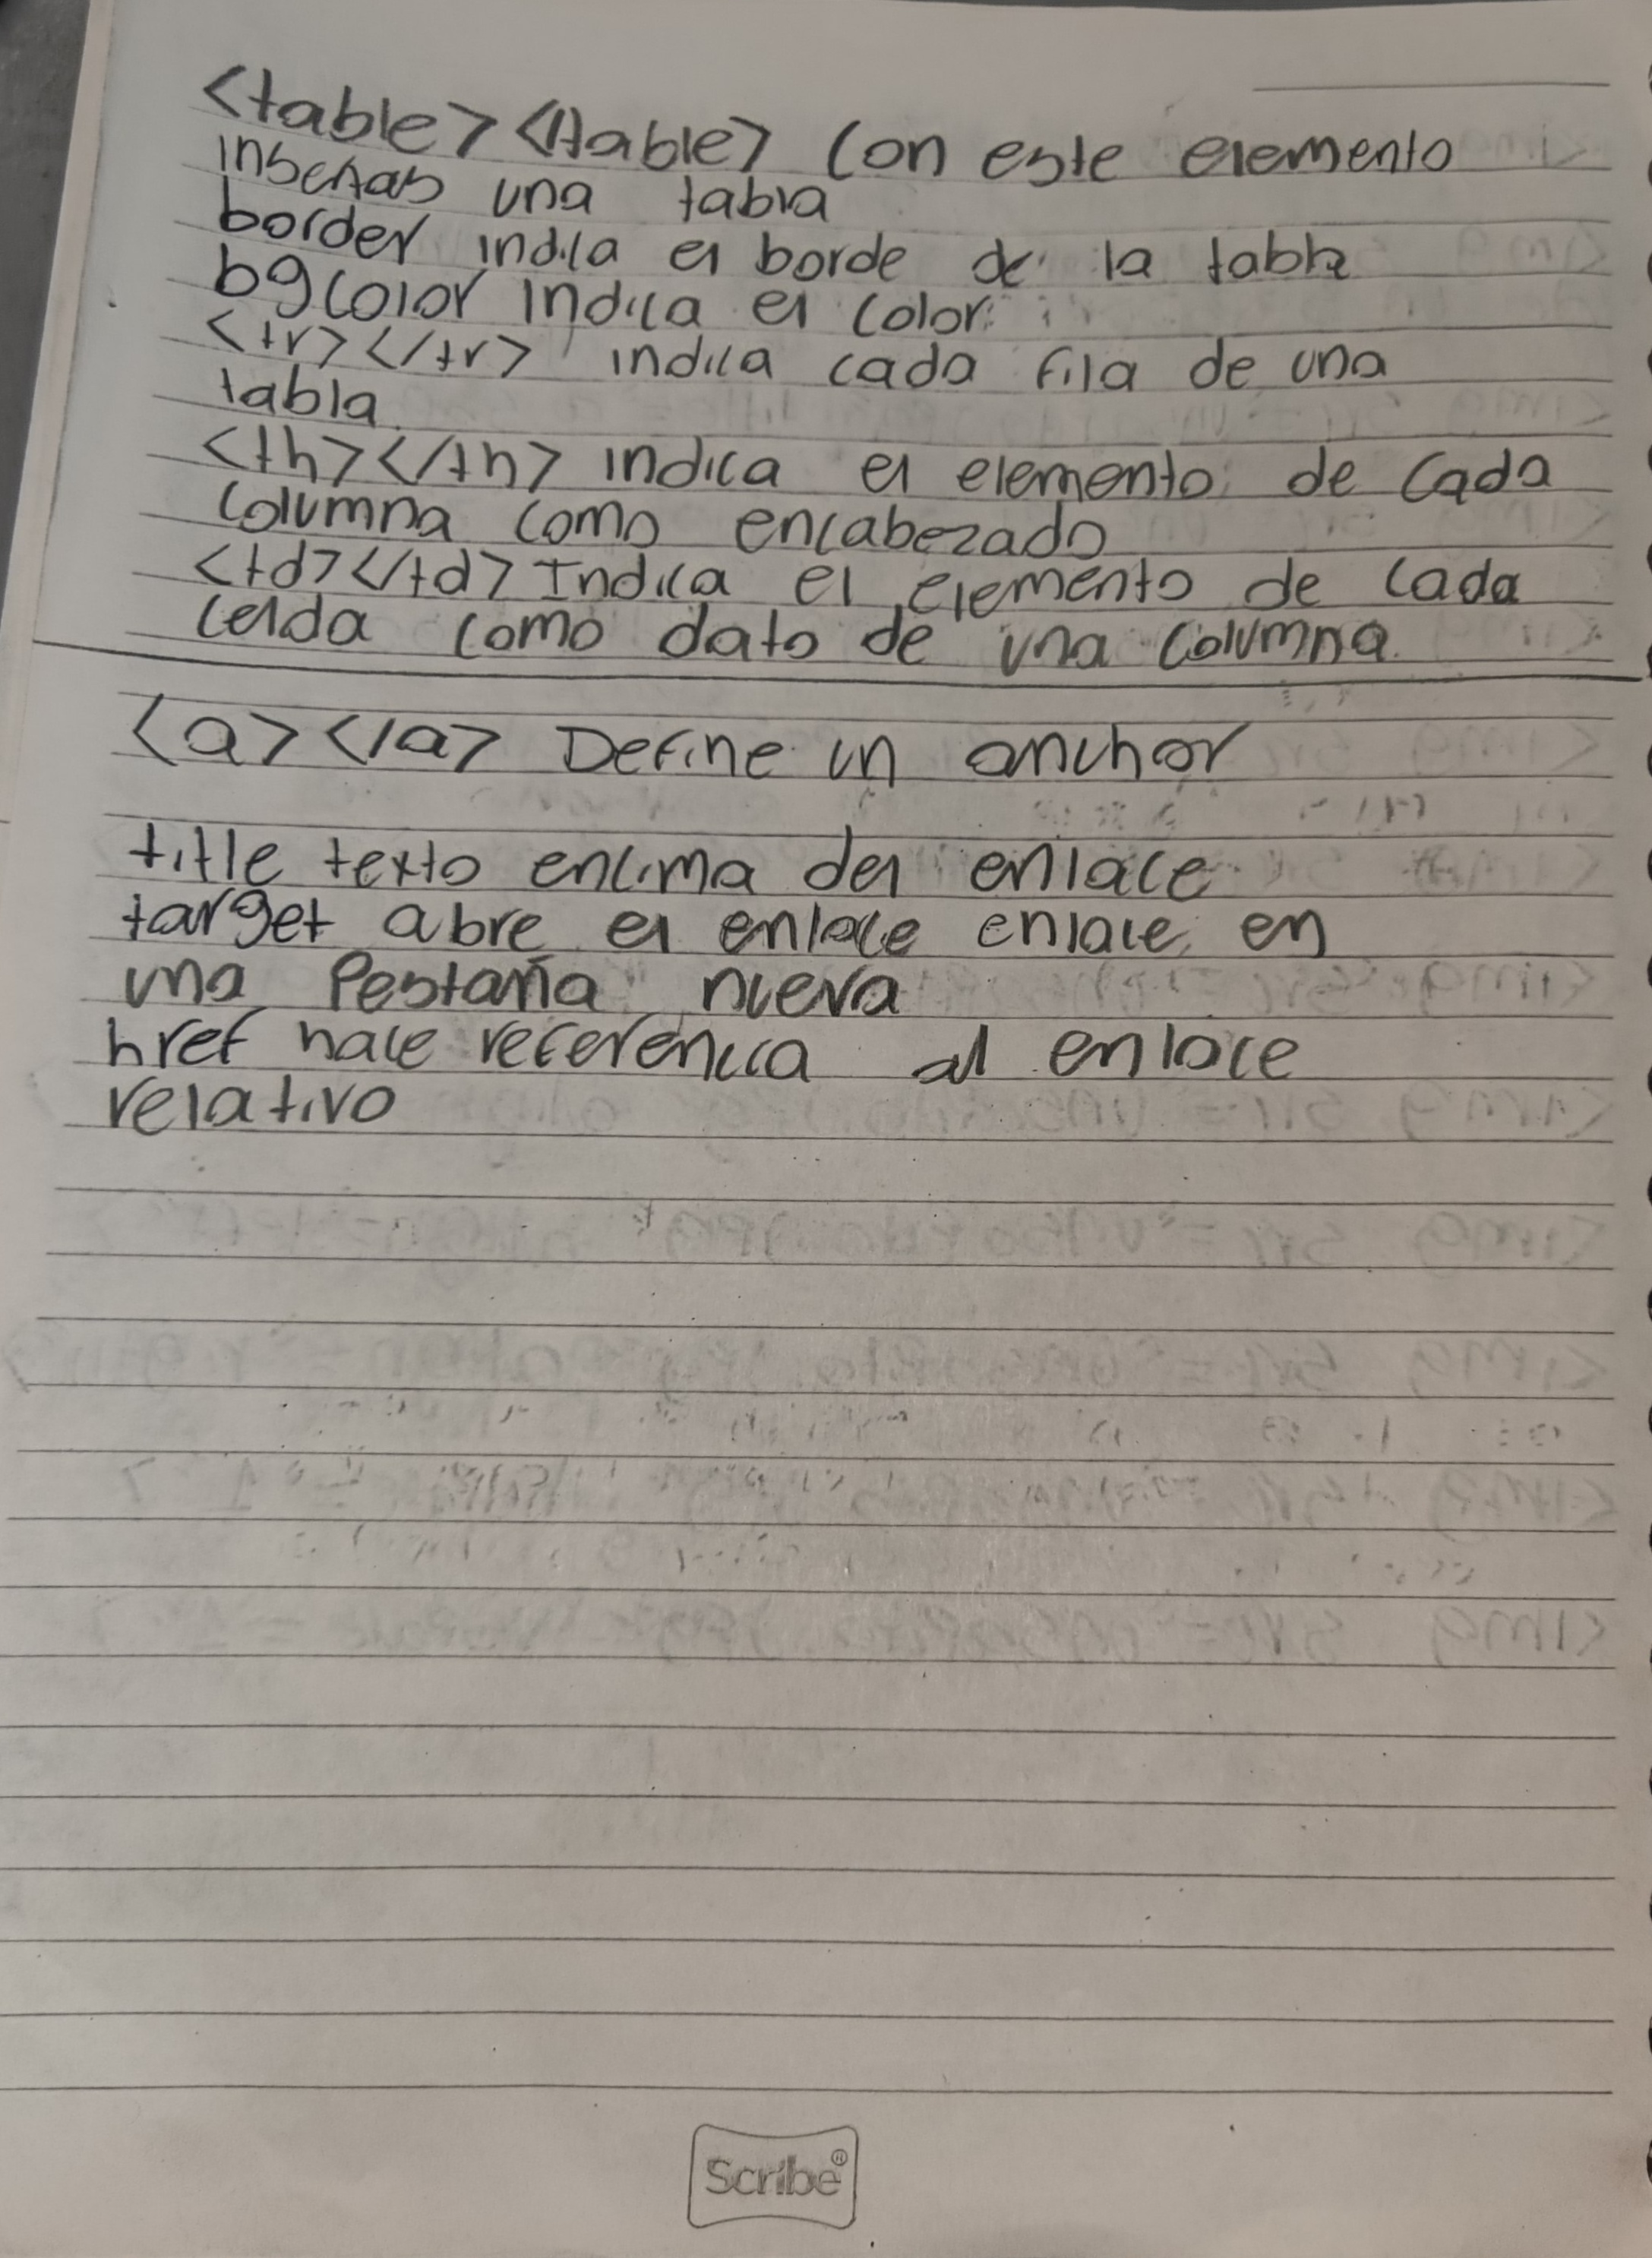 <table></table> Con este elemento
insertas una tabla
border indica el borde de la tabla
bgcolor indica el color
<tr></tr> indica cada fila de una
tabla
<th></th> indica el elemento de cada
columna como encabezado
<td></td> Indica el elemento de cada
celda como dato de una columna.
<a></a> Define un anchor
title texto encima del enlace
target abre el enlace enlace en
una Pestaña nueva
href hace referencia al enlace
relativo
Scribe®